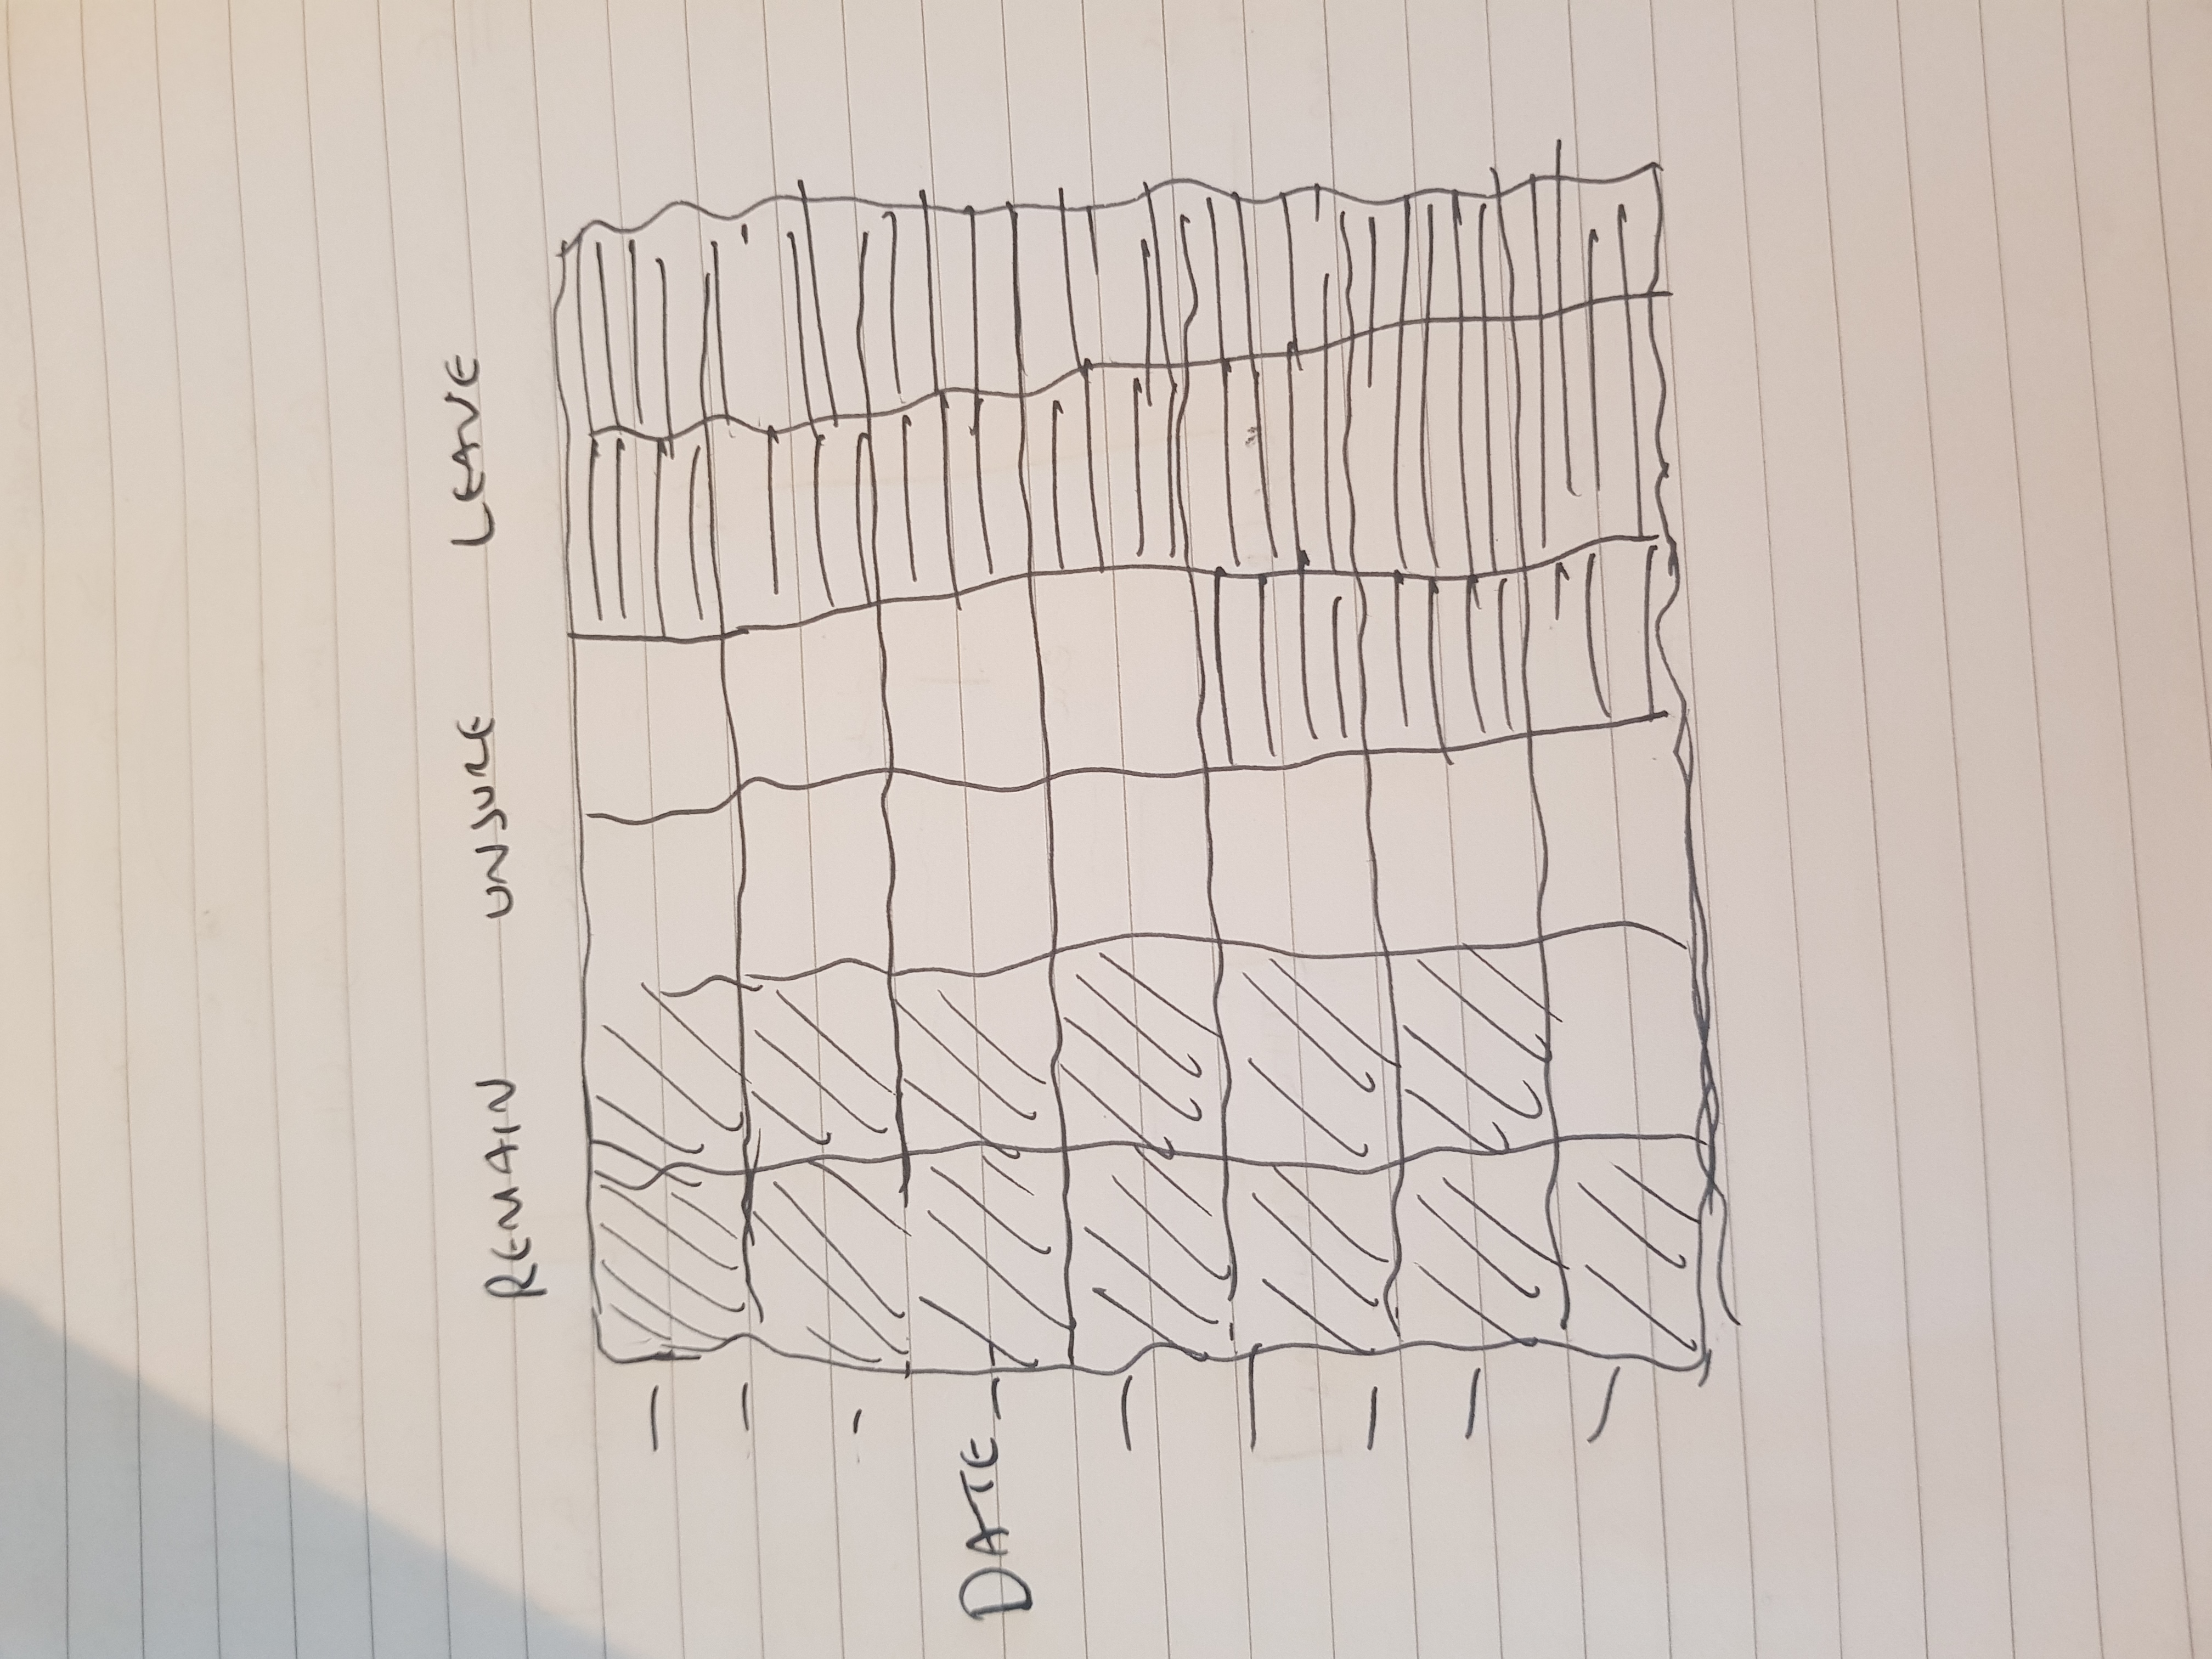 REMAIN UNSURE LEAVE
DATE